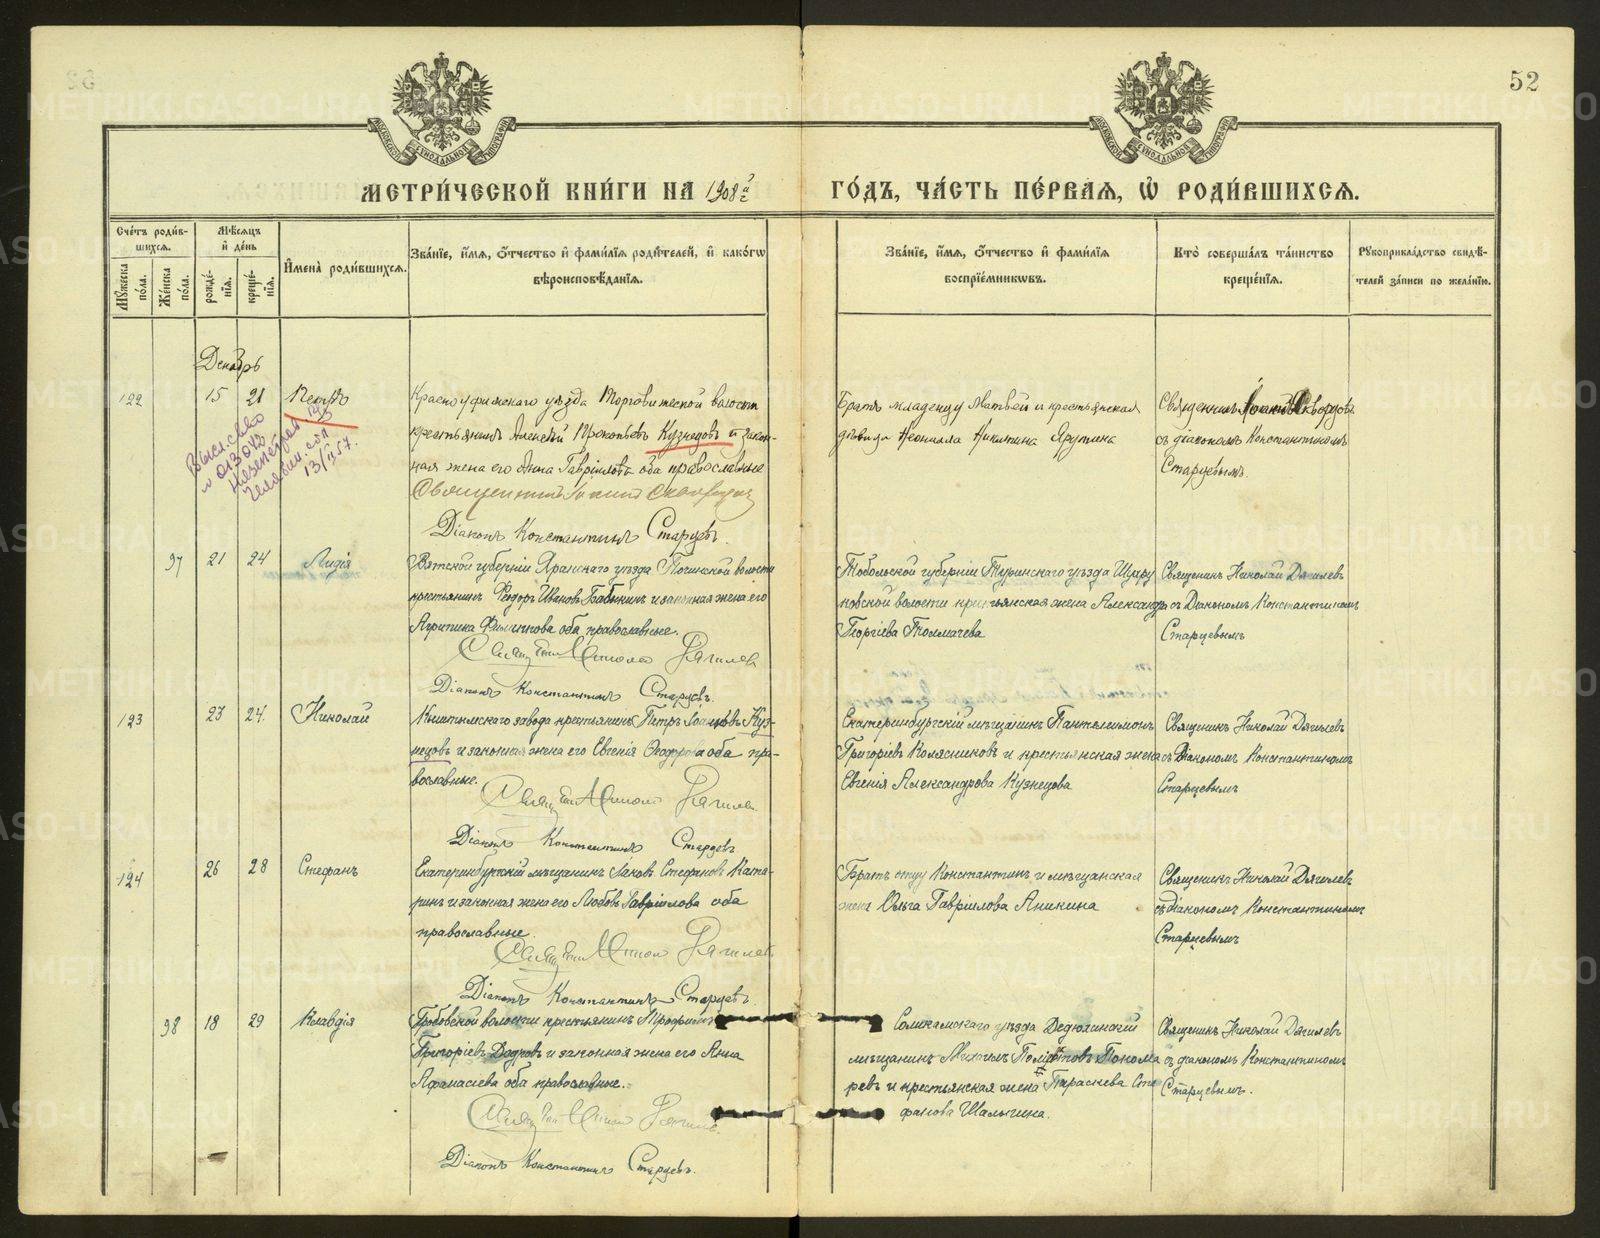 52
МЕТРИ́ЧЕСКОЙ КНИ́ГИ НА 1908 й
ГО́ДЪ, ЧА́СТЬ ПЕ́РВАЯ, Ѡ҆ РОДИ́ВШИХСЯ.
Сче́тъ роди́в-
шихся.
Мужеска по́ла.
Же́нска по́ла.
Мѣ́сяцъ и҆ де́нь
рожде́-
нїя.
креще́-
нїя.
И҆мена̀ роди́вшихся.
Зва́нїе, и҆́мя, ѻ҆́тчество и҆ фами́лїя роди́телей, и҆ како́гѡ
вѣроисповѣ́данїя.
Зва́нїе, и҆́мя, ѻ҆́тчество и҆ фами́лїя
воспрїе́мникѡвъ.
Кто̀ соверша́лъ та́инство
креще́нїя.
Рꙋкоприкла́дство свидѣ́-
телей за́писи по жела́нїю.
Декабрь
122 15 21 Петръ
Красноуфимскаго уѣзда Торговижской волости
крестьянинъ Алексѣй Прокопьевъ Кузнецовъ и закон-
ная жена его Анна Гаврiилова оба православные
Священникъ Iоаннъ Сковородовъ
Дiаконъ Константинъ Старцевъ.
Братъ младенцу Матвей и крестьянская
дѣвица Неонилла Никитина Ярутина
Священникъ Iоаннъ Сковородовъ
съ дiакономъ Константиномъ
Старцевымъ.
13/II 57.
97 21 24 Лидiя
Вятской губернiи Яранскаго уѣзда волости
крестьянинъ Феодоръ Ивановъ Бабыкинъ и законная жена его
Агрипина Филиппова оба православные.
Священникъ Николай Дягилевъ
Дiаконъ Константинъ Старцевъ.
Тобольской губернiи Туринскаго уѣзда
новской волости крестьянская жена Александра
Георгiева Толмачева
Священникъ Николай Дягилевъ
съ Дiакономъ Константиномъ
Старцевымъ
123 23 24. Николай
Кыштымскаго завода крестьянинъ Петръ Iоанновъ Куз-
нецовъ и законная жена его Евгенiя Ѳеодорова оба пра-
вославные.
Священникъ Николай Дягилевъ
Дiаконъ Константинъ Старцевъ
Екатеринбургскiй мѣщанинъ Пантелеимонъ
Григорiевъ Колясниковъ и крестьянская жена
Евгенiя Александрова Кузнецова
Священникъ Николай Дягилевъ
съ Дiакономъ Константиномъ
Старцевымъ
124 26 28 Стефанъ
Екатеринбургскiй мѣщанинъ Iаковъ Стефановъ Ката-
ринъ и законная жена его Любовь Гаврiилова оба
православные.
Священникъ Николай Дягилевъ
Дiаконъ Константинъ Старцевъ.
Братъ отцу Константинъ и мѣщанская
жена Ольга Гаврiилова Аникина
Священникъ Николай Дягилевъ
съ дiакономъ Константиномъ
Старцевымъ
98 18 29 Клавдiя
Гробовской волости крестьянинъ Трофимъ
Григорiевъ и законная жена его Анна
Афанасiева оба православные.
Священникъ Николай Дягилевъ
Дiаконъ Константинъ Старцевъ.
Соликамскаго уѣзда Дедюхинскiй
мѣщанинъ Михаилъ Понома
ревъ и крестьянская жена Параскева Сте
фанова Шалыгина.
Священникъ Николай Дягилевъ
съ дiакономъ Константиномъ
Старцевымъ.
METRIKI.GASO-URAL.RU